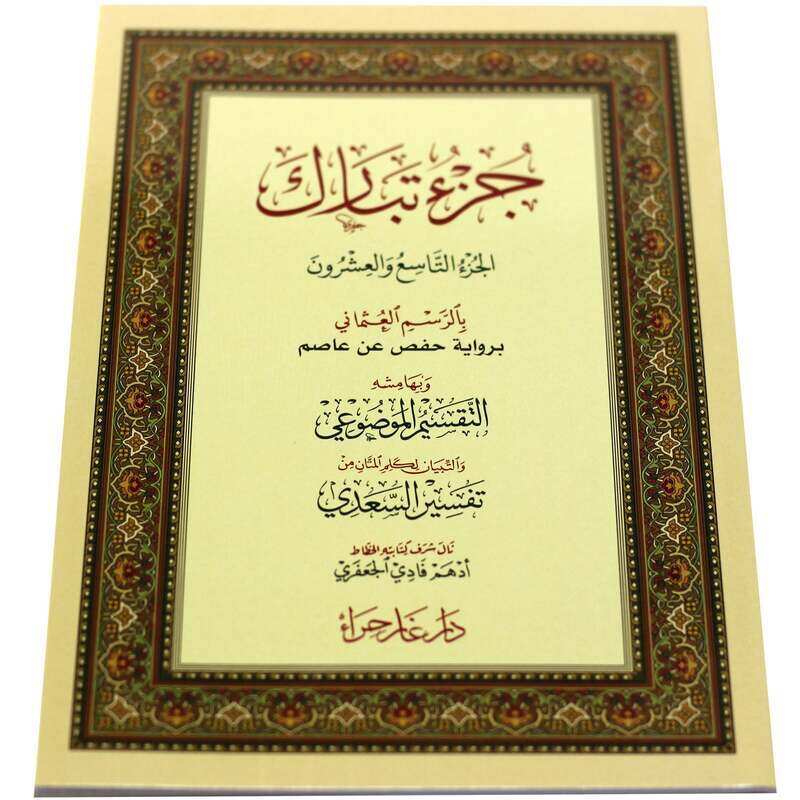 جُزْءُ تَبَارَكَ
الجُزْءُ التَّاسِعُ وَالعِشْرُونَ
بِالرَّسْمِ العُثْمَانِي
برواية حفص عن عاصم
وَبِهَامِشِهِ
التَّقْسِيْمُ المَوْضُوْعِيْ
وَالتِّبْيَان لِكَلِمِ المَنَّانِ مِنْ
تَفْسِيْرِ السَّعْدِي
نَالَ شَرَفَ كِتَابَتِهِ الخَطَّاط
أَدْهَم فَادِي الجَعْفَرِي
دَار غَار حِرَاء